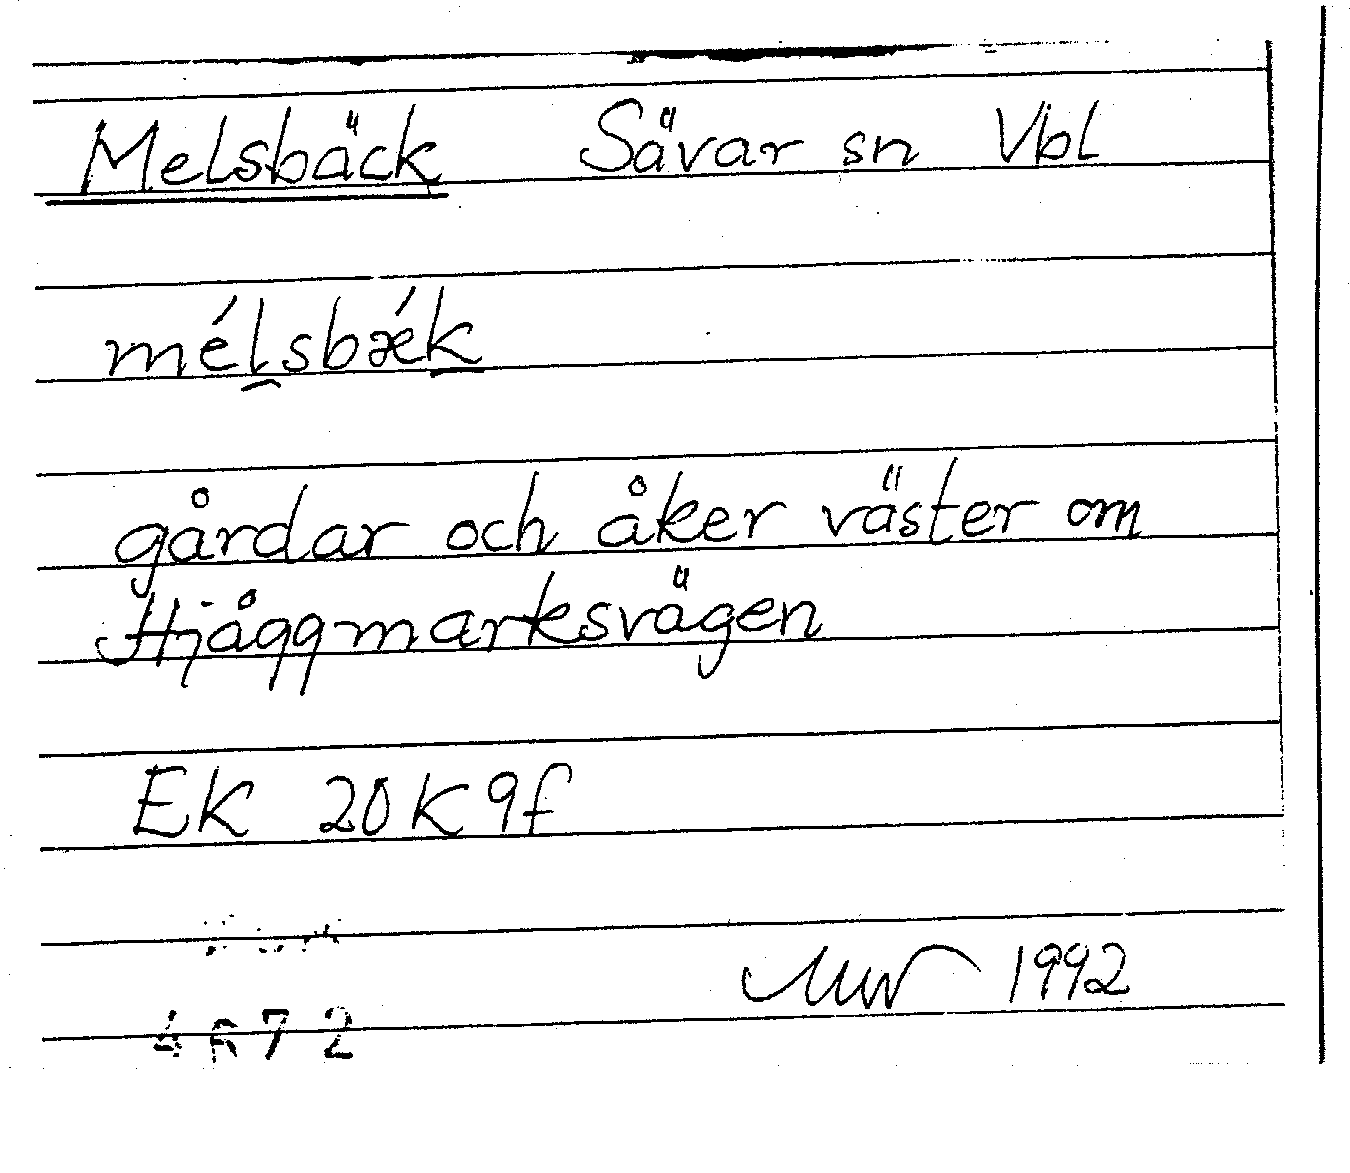 Melsbäck Sävar sn Vbl
mélsbǽk
gårdar och åker väster om
Hjåggmarksvägen
EK 20K 9f
1992
4672